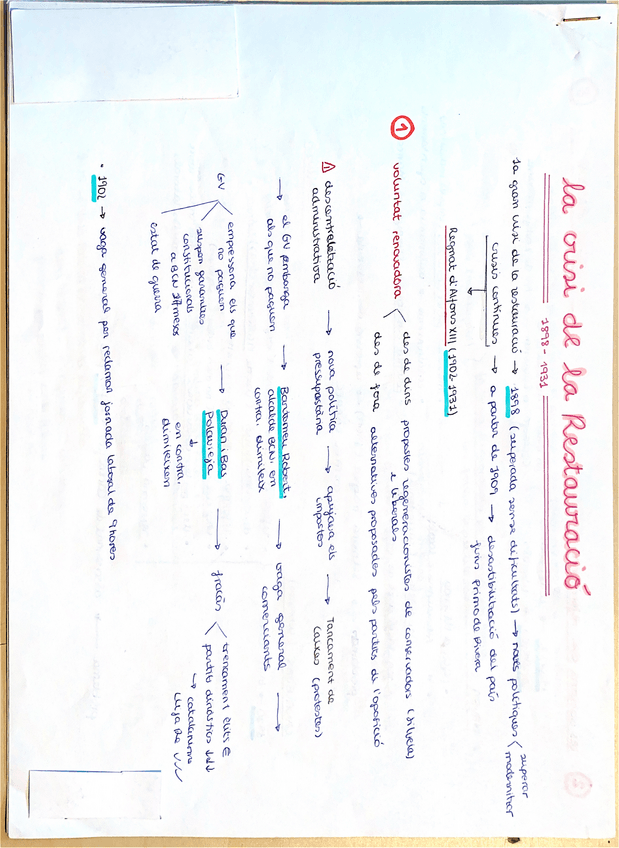 la crisi de la Restauració
1898 - 1931
1a gran crisi de la restauració → 1898 (superada sense dificultats) → noves polítiques
superar
modernitzar
crisis contínues → a partir de 1909 → desestabilització del país
fins Primo de Rivera
Regnat d'Alfons XIII (1902-1931)
1 voluntat renovadora
des de dins propostes regeneracionistes de conservadors (Silvela)
i liberals
des de fora alternatives proposades pels partits de l'oposició
descentralització
administrativa
→ nova política
pressupostària
→ apujava els
impostos
→ Tancament de
caixes (protestes)
→ el GV embarga
als que no paguen
→ Bartomeu Robert,
alcalde BCN, en
contra, dimiteix
→ vaga general
comerciants →
GV
empresona els que
no paguen
suspèn garanties
constitucionals
a BCN
estat de guerra
→ Duran i Bas
Polavieja
↓
en contra,
dimiteixen
→ fracàs
creixement elits €
partits dinàstics ↓↓↓
→ catalanisme
• 1902 → vaga general per reclamar jornada laboral de 9 hores